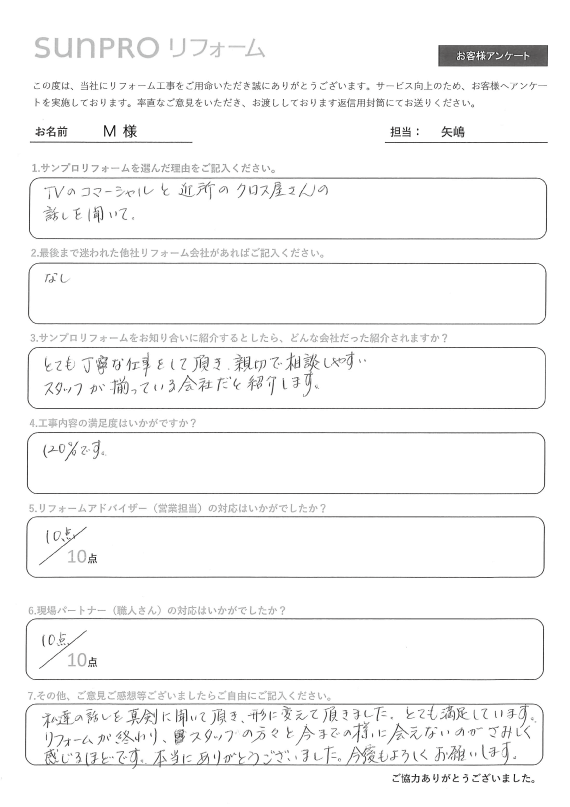 SUNPRO リフォーム
お客様アンケート
この度は、当社にリフォーム工事をご用命いただき誠にありがとうございます。サービス向上のため、お客様へアンケー
トを実施しております。率直なご意見をいただき、お渡ししております返信用封筒にてお送りください。
お名前 M 様 担当： 矢嶋
1.サンプロリフォームを選んだ理由をご記入ください。
TVのコマーシャルと近所のクロス屋さんの
話しを聞いて.
2.最後まで迷われた他社リフォーム会社があればご記入ください。
なし
3.サンプロリフォームをお知り合いに紹介するとしたら、どんな会社だった紹介されますか？
とても丁寧な仕事をして頂き、親切で相談しやすい
スタッフが揃っている会社だと紹介します。
4.工事内容の満足度はいかがですか？
120%です。
5.リフォームアドバイザー（営業担当）の対応はいかがでしたか？
10点/
10点
6.現場パートナー（職人さん）の対応はいかがでしたか？
10点/
10点
7.その他、ご意見ご感想等ございましたらご自由にご記入ください。
私達の話しを真剣に聞いて頂き、形に変えて頂きました。とても満足しています。
リフォームが終わり、スタッフの方々と今までの様に会えないのがさみしく
感じるほどです。本当にありがとうございました。今後もよろしくお願いします。
ご協力ありがとうございました。